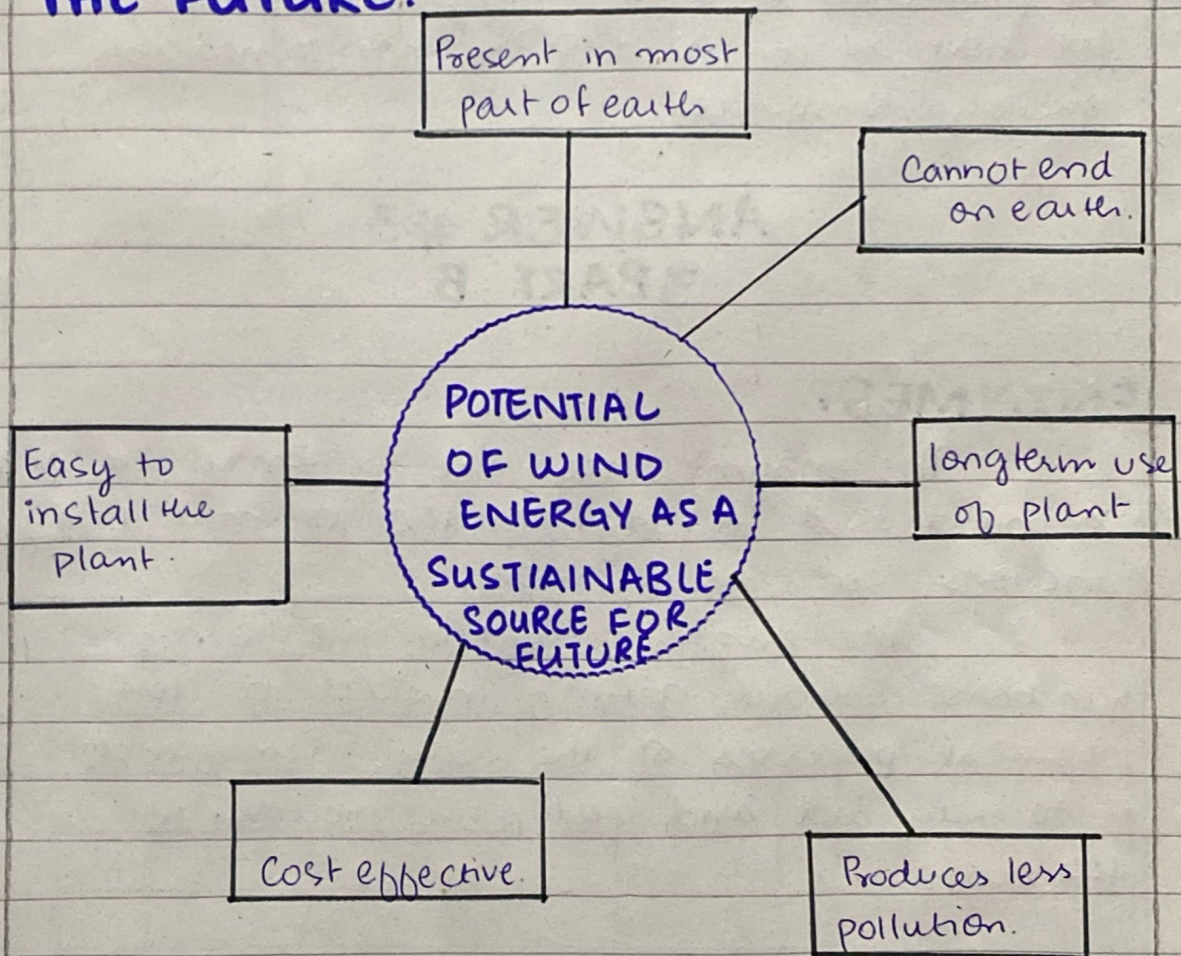 THE FUTURE.
Present in most
part of earth
Cannot end
on earth.
POTENTIAL
OF WIND
ENERGY AS A
SUSTIAINABLE
SOURCE FOR
FUTURE
Easy to
install the
plant.
longterm use
of plant
Cost effective.
Produces less
pollution.
ANSWER
PART B